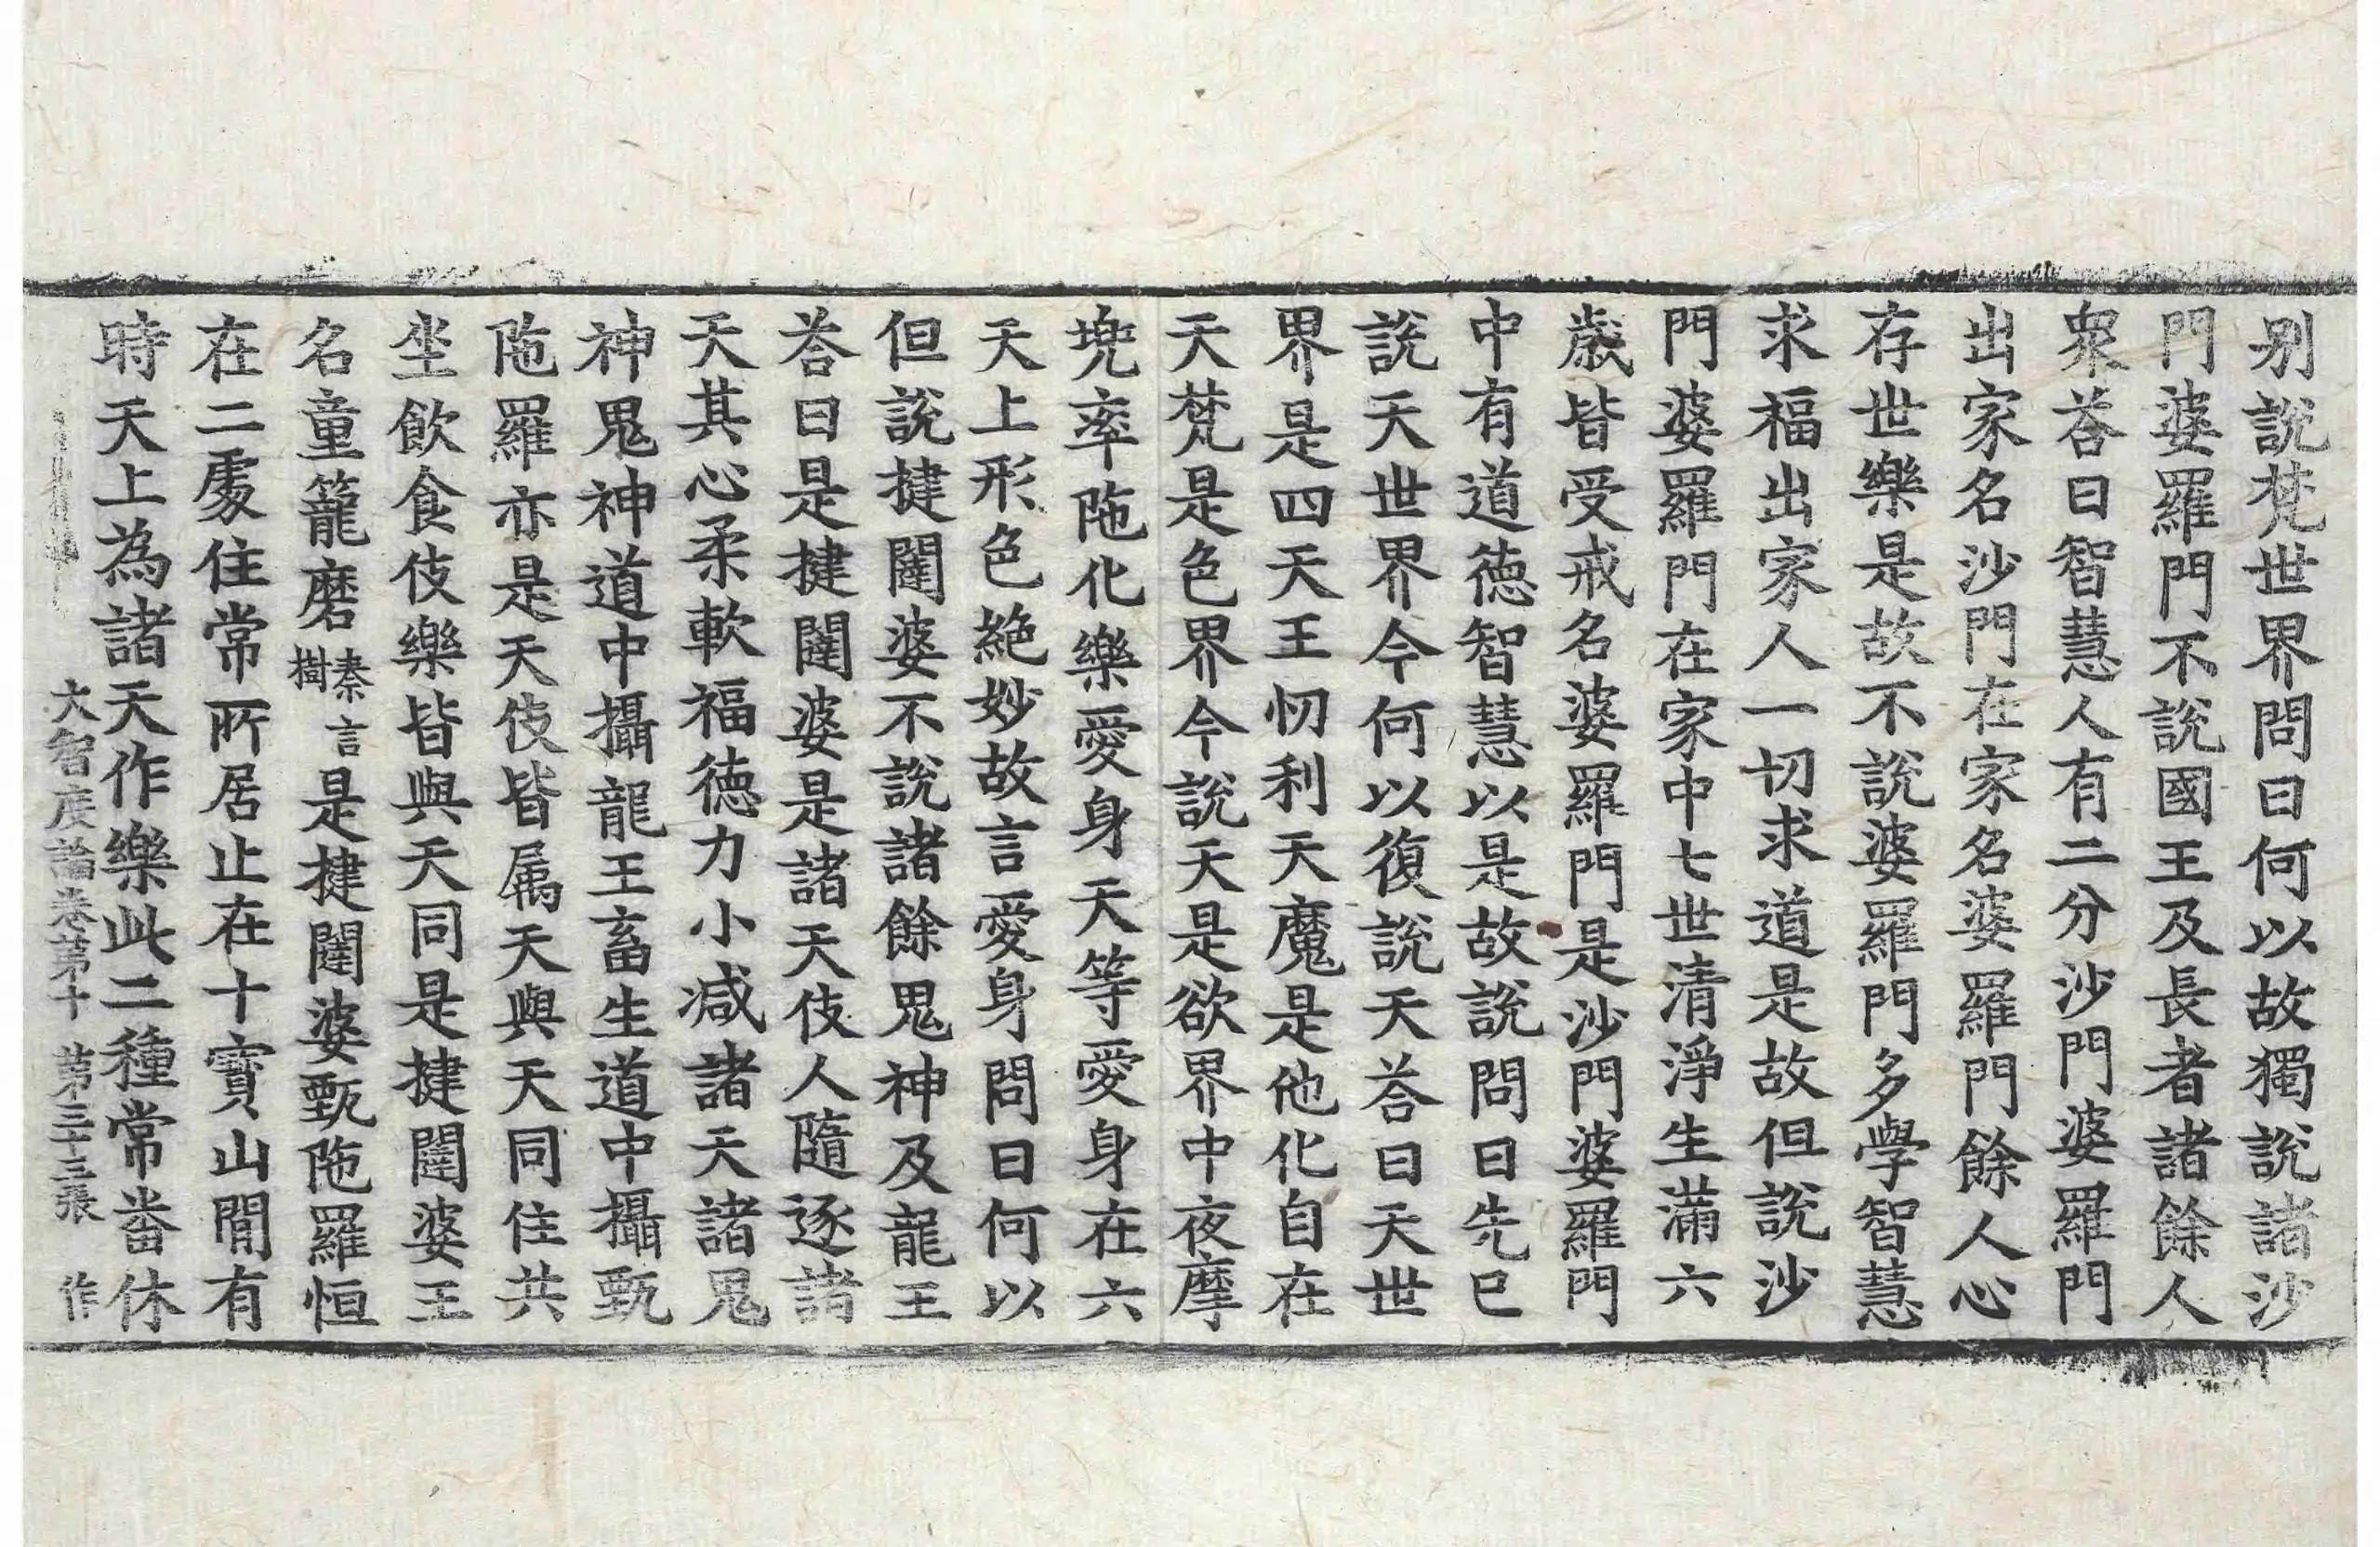 别說梵世界問曰何以故獨說諸沙
門婆羅門不說國王及長者諸餘人
衆荅曰智慧人有二分沙門婆羅門
出家名沙門在家名婆羅門餘人心
存世樂是故不說婆羅門多學智慧
求福出家人一切求道是故但說沙
門婆羅門在家中七世清淨生滿六
歲皆受戒名婆羅門是沙門婆羅門
中有道德智慧以是故說問曰先已
說天世界今何以復說天荅曰天世
界是四天王忉利天魔是他化自在
天梵是色界今說天是欲界中夜摩
兠率陁化樂愛身天等愛身在六
天上形色絶妙故言愛身問曰何以
但說揵闥婆不說諸餘鬼神及龍王
荅曰是揵闥婆是諸天伎人隨逐諸
天其心柔軟福德力小减諸天諸鬼
神鬼神道中攝龍王畜生道中攝甄
陁羅亦是天伎皆属天與天同住共
坐飮食伎樂皆與天同是揵闥婆王
名童籠磨秦言樹是揵闥婆甄陁羅恒
在二處住常所居止在十寶山間有
時天上為諸天作樂此二種常畨休
大智度論卷第十 第三十三張 作